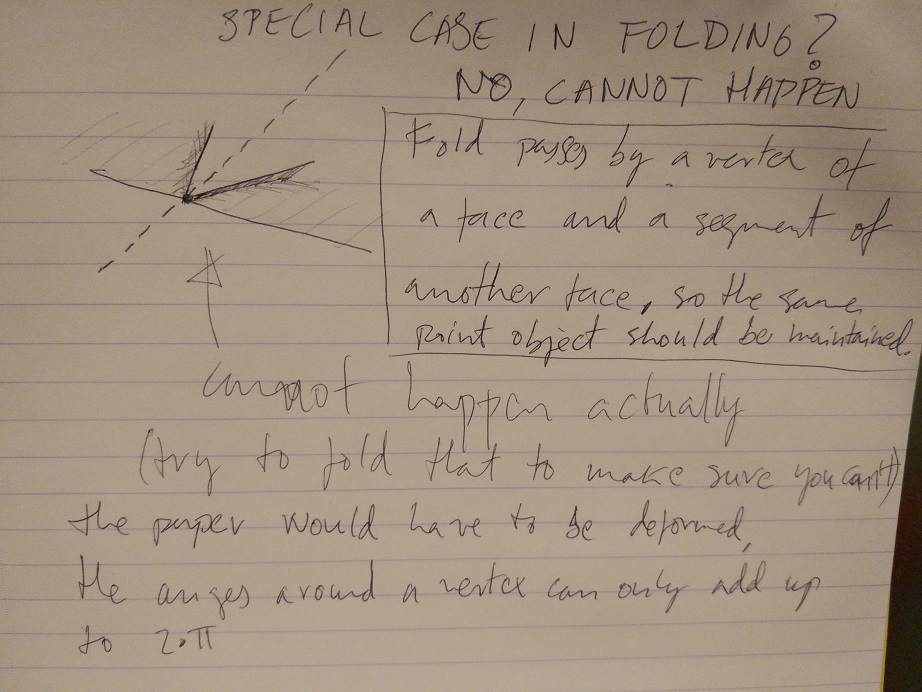 SPECIAL CASE IN FOLDING?
NO, CANNOT HAPPEN
Fold passes by a vertex of
a face and a segment of
another face, so the same
point object should be maintained.
cannot happen actually
(try to fold that to make sure you can't)
the paper would have to be deformed,
the anges around a vertex can only add up
to 2·π